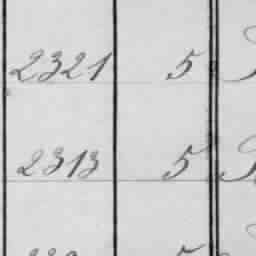 2321 5
2313 5